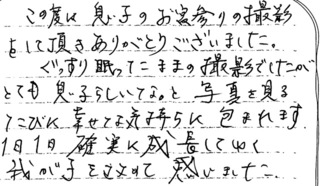 この度は息子のお宮参りの撮影
をして頂きありがとうございました。
ぐっすり眠ってこままの撮影でしたが
とても息子らしいてな。と写真を見る
たびに幸せな気持ちに包まれます
1日1日確実に成長してゆく
我が子を改めて感いました